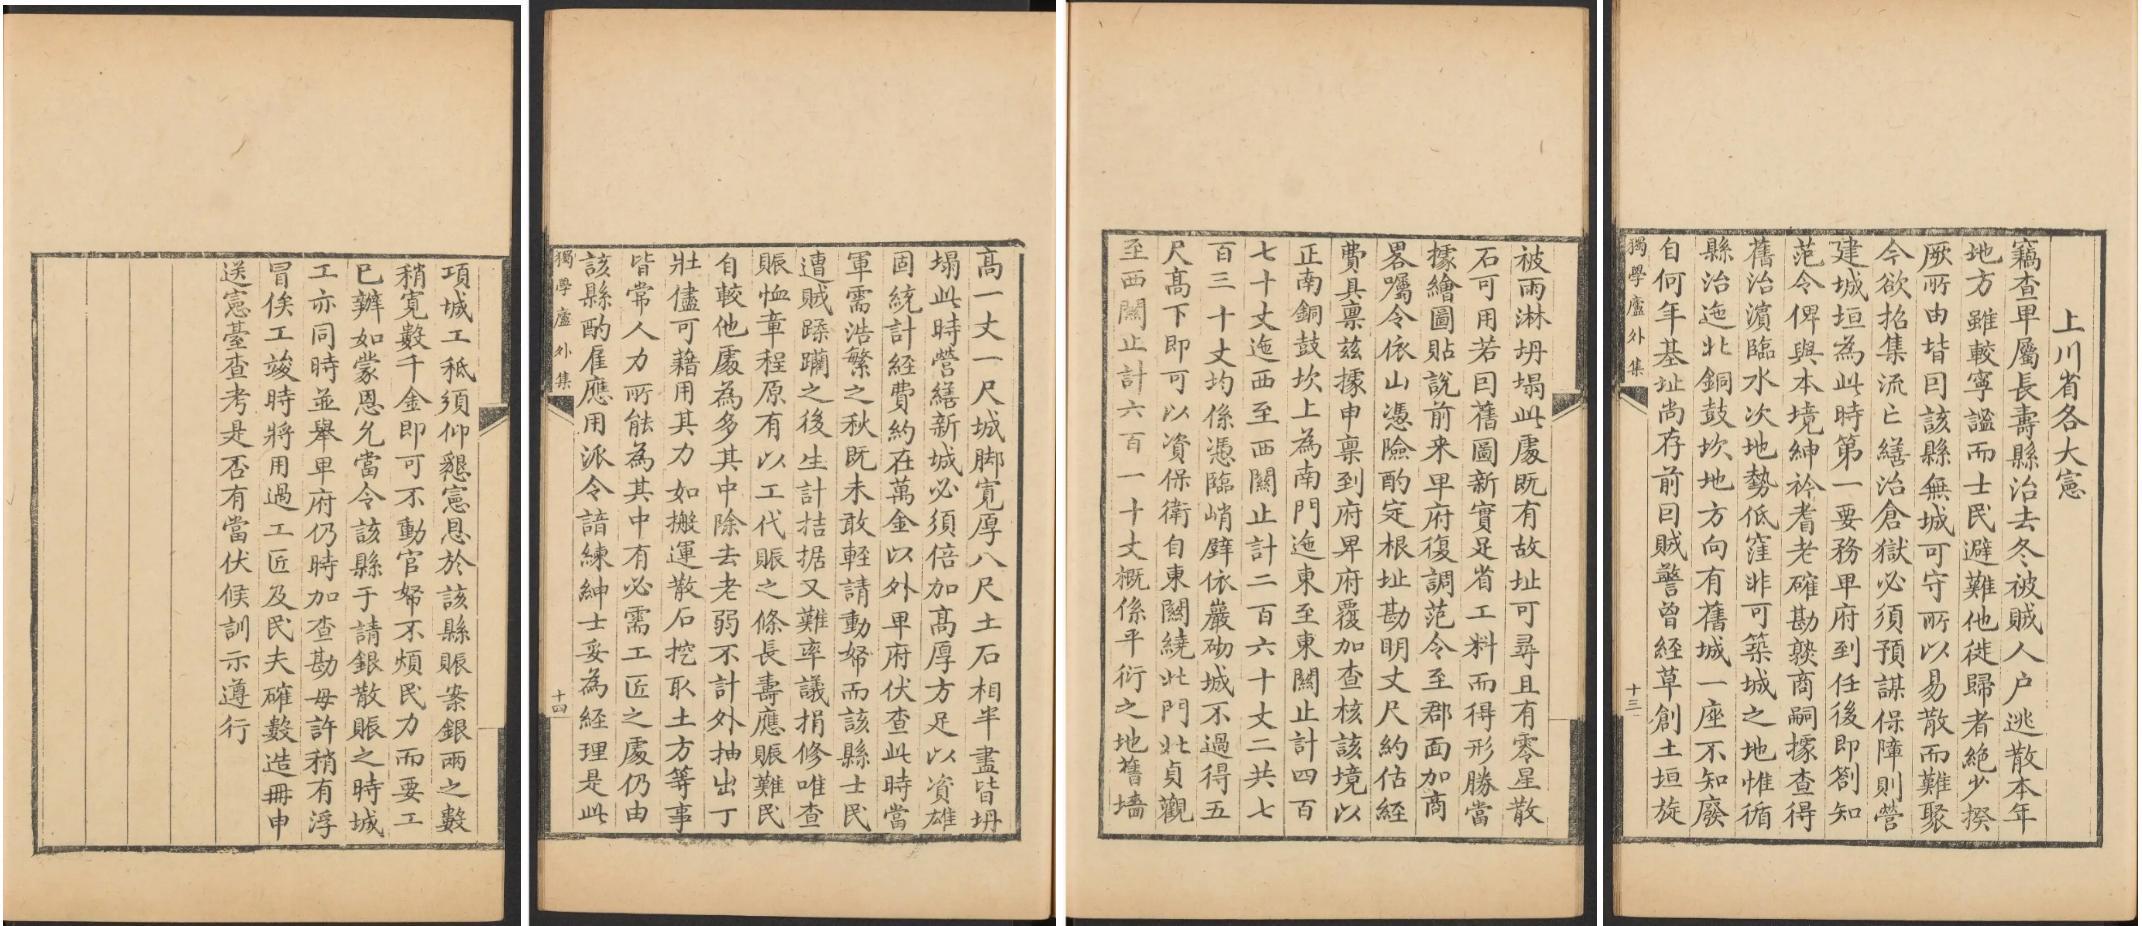 上川省各大憲
竊查卑屬長壽縣治去冬被賊人户逃散本年
地方雖較寧謐而士民避難他徙歸者絶少揆
厥所由皆曰該縣無城可守所以易散而難聚
今欲招集流亡繕治倉獄必須預謀保障則營
建城垣為此時第一要務卑府到任後即劄知
范令俾與本境紳衿耆老確勘熟商嗣據查得
舊治濱臨水次地勢低窪非可築城之地惟循
縣治迤北銅鼓坎地方向有舊城一座不知廢
自何年基址尚存前因賊警曾經草創土垣旋
獨學廬外集
十三
被雨淋坍塌此處既有故址可尋且有零星散
石可用若因舊圖新實足省工料而得形勝當
據繪圖貼説前来卑府復調范令至郡面加商
畧囑令依山憑險酌定根址勘明丈尺約估經
費具稟兹據申稟到府卑府覆加查核該境以
正南銅鼓坎上為南門迤東至東關止計四百
七十丈迤西至西關止計二百六十丈二共七
百三十丈均係憑臨峭壁依巖砌城不過得五
尺高下即可以資保衛自東關繞北門北貞觀
至西關止計六百一十丈概係平衍之地舊墻
高一丈一尺城脚寬厚八尺土石相半盡皆坍
塌此時營繕新城必須倍加高厚方足以資雄
固統計経費約在萬金以外卑府伏查此時當
軍需浩繁之秋既未敢輕請動帑而該縣士民
遭賊蹂躪之後生計拮据又難率議捐修唯查
賑恤章程原有以工代賑之條長壽應賑難民
自較他處為多其中除去老弱不計外抽出丁
壯儘可藉用其力如搬運散石挖取土方等事
皆常人力所能為其中有必需工匠之處仍由
該縣酌雇應用派令諳練紳士妥為經理是此
獨學廬外集
十四
項城工秪須仰懇憲恩於該縣賑案銀兩之數
稍寛數千金即可不動官帑不煩民力而要工
已辦如蒙恩允當令該縣于請銀散賑之時城
工亦同時並舉卑府仍時加查勘毋許稍有浮
冒俟工竣時將用過工匠及民夫確數造冊申
送憲臺查考是否有當伏候訓示遵行